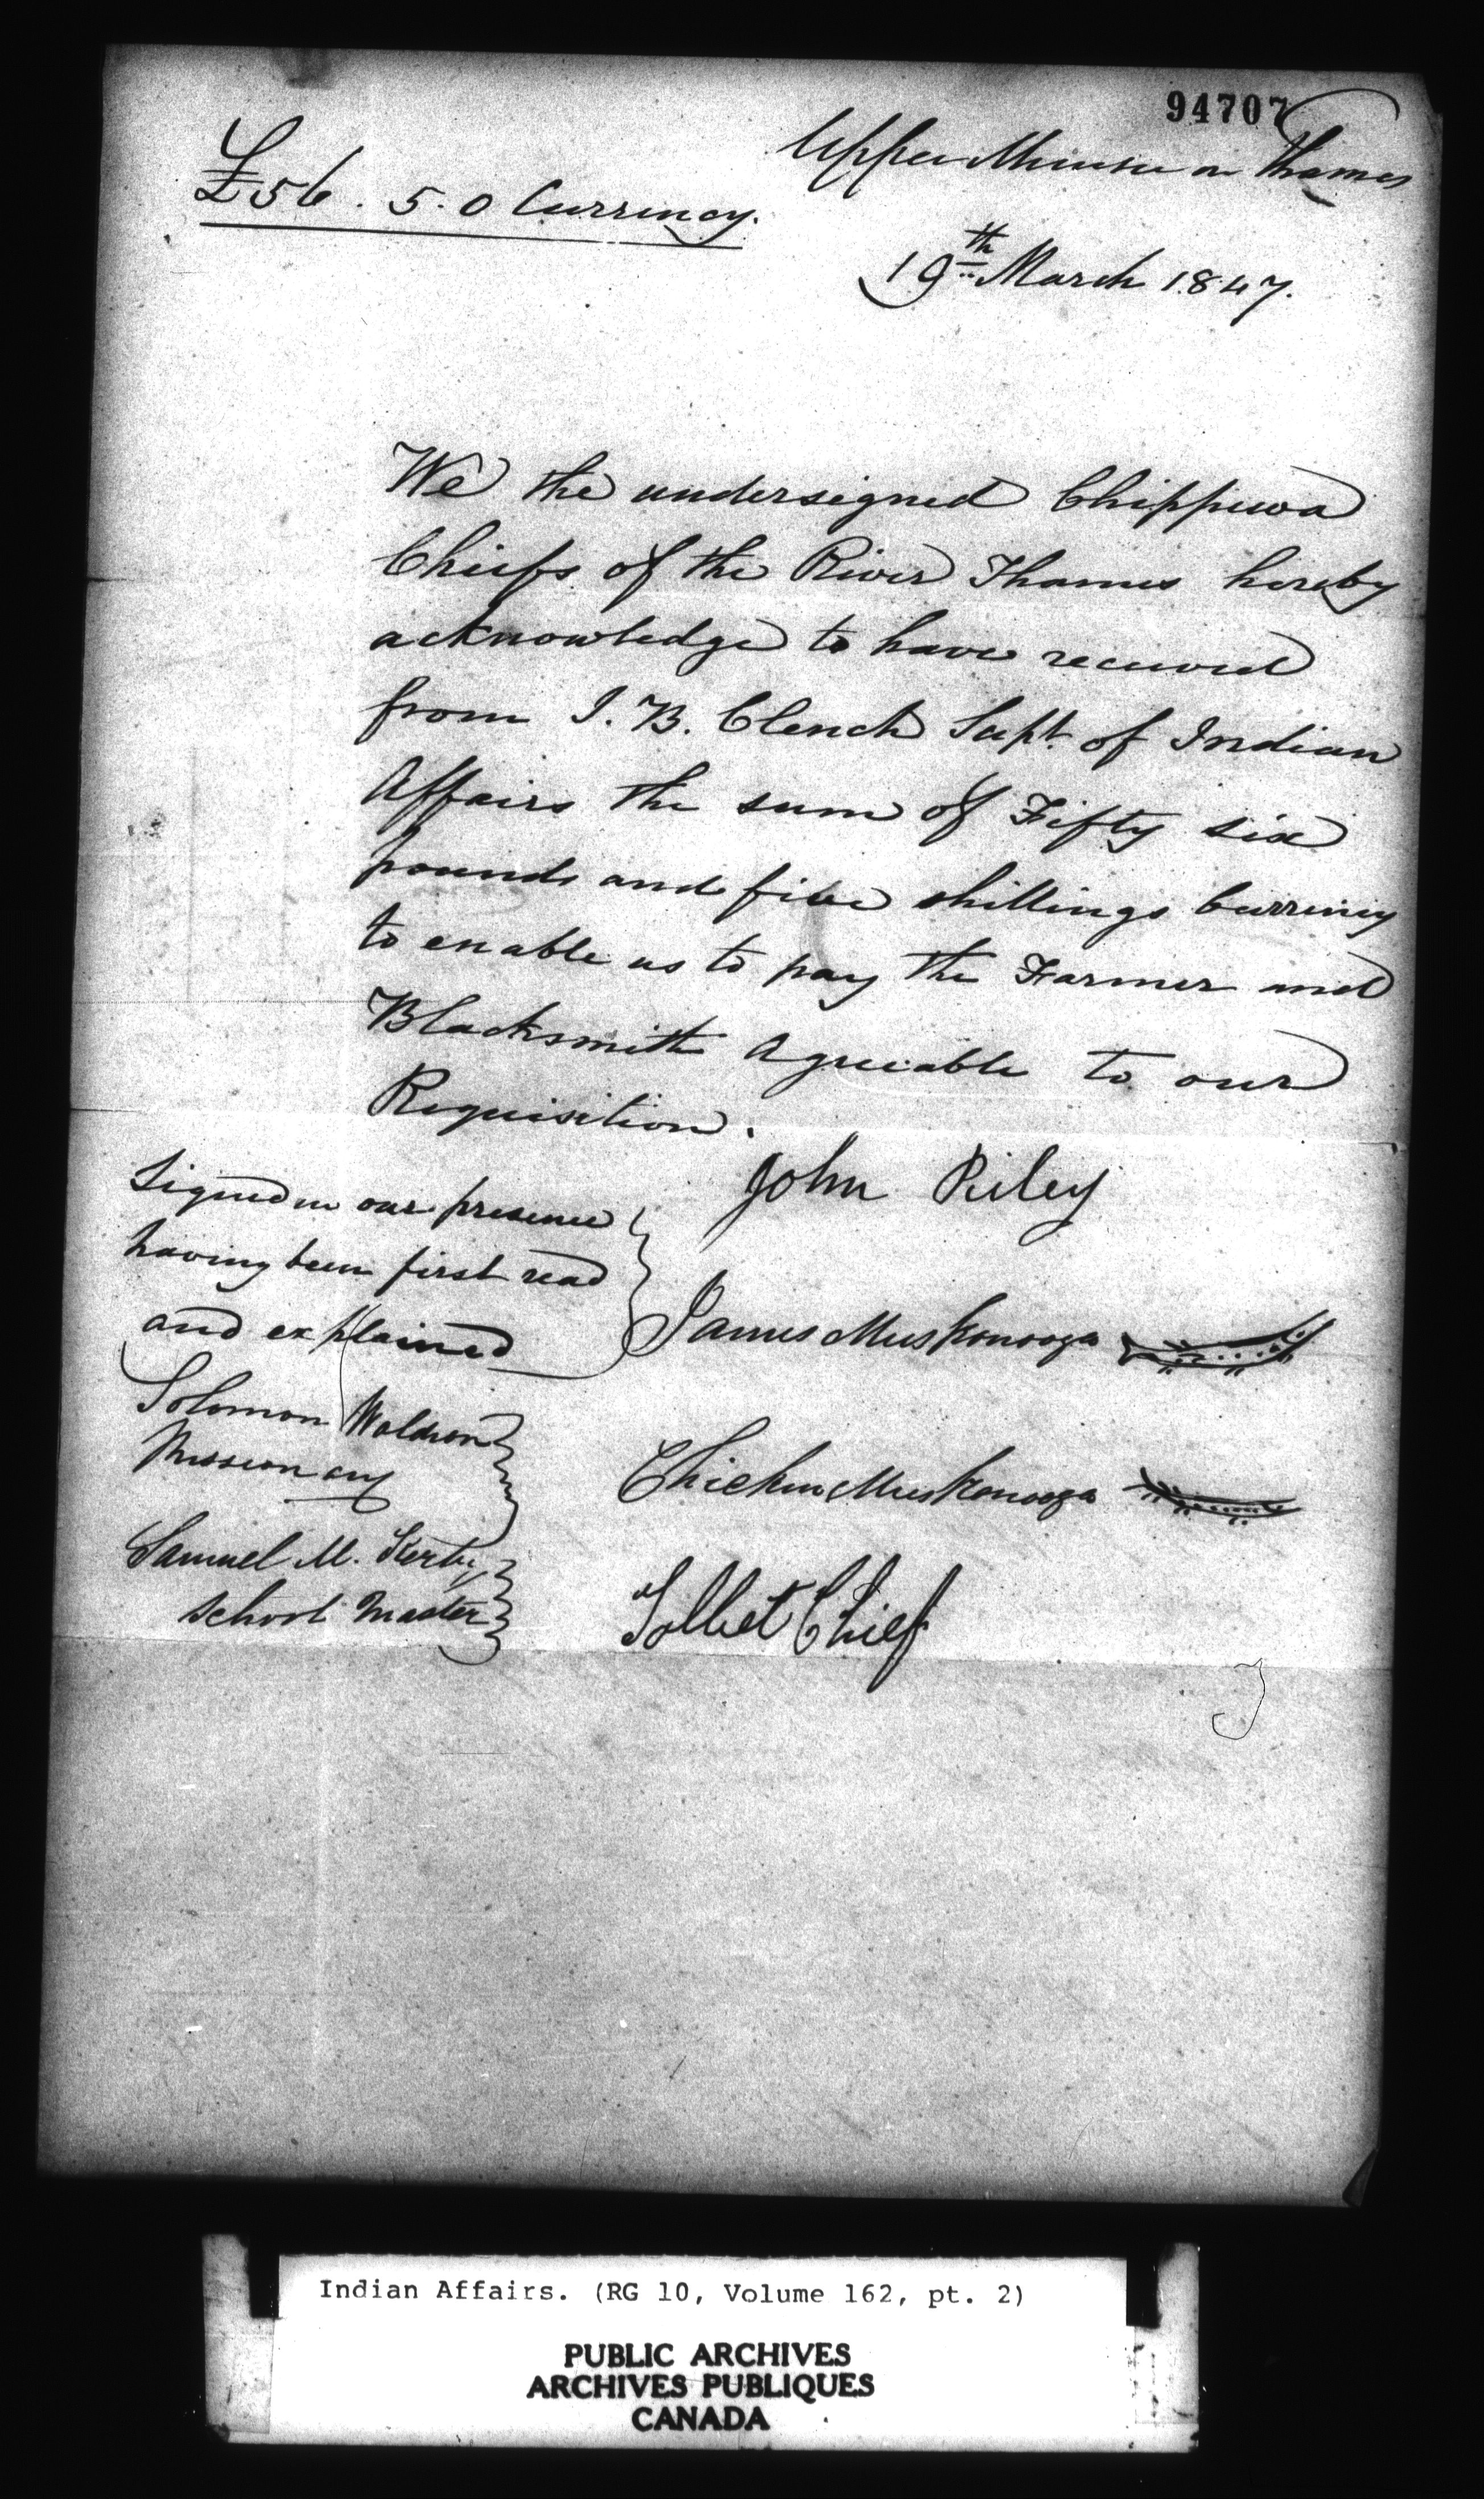 94707
£56. 5. 0 Currency.
Upper Munsee on Thames
19th March 1847.
We the undersigned Chippewa
Chiefs of the River Thames hereby
acknowledge to have received
from J. B. Clench Supt. of Indian
Affairs the sum of Fifty six
pounds and five shillings Currency
to enable us to pay the Farmer and
Blacksmith Agreeable to our
Requisition.
Signed in our presence
having been first read
and explained
Solomon Waldron
Missionary
Samuel M. Kerby
School Master
John Riley
James Muskonooga
Chicken Muskonooga
Tolbet Chief
Indian Affairs. (RG 10, Volume 162, pt. 2)
PUBLIC ARCHIVES
ARCHIVES PUBLIQUES
CANADA